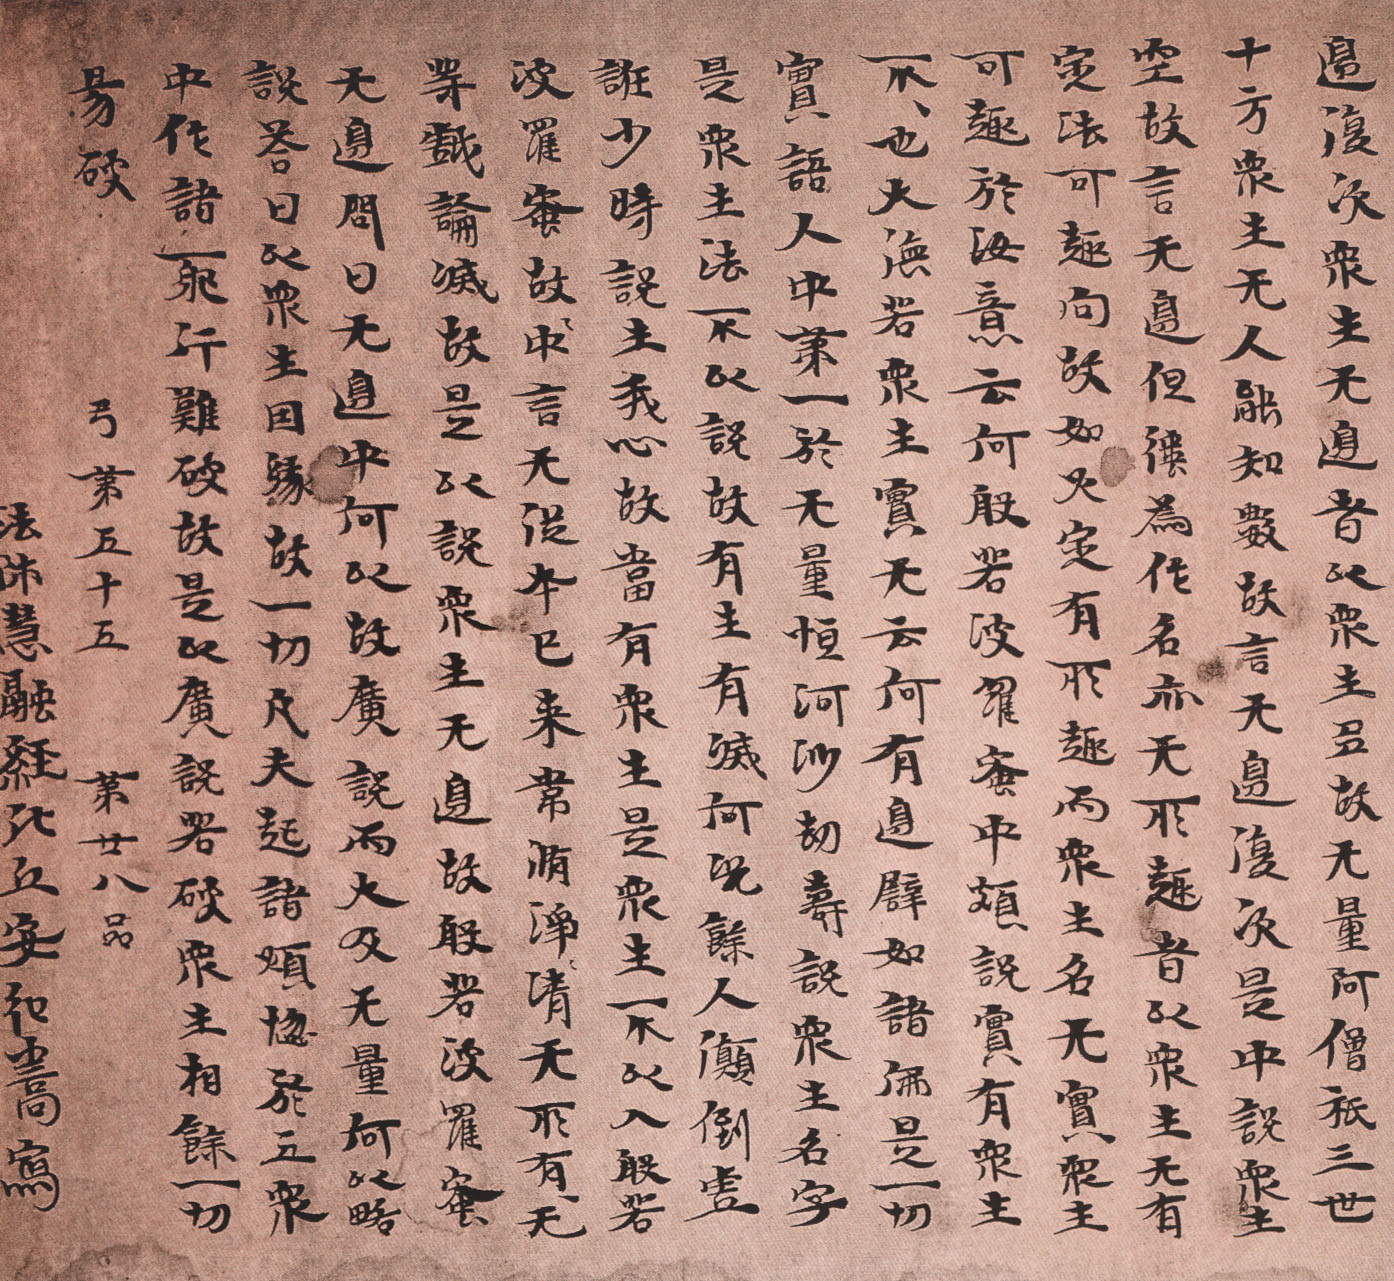 邊復次眾生无邊者以眾生多故无量阿僧祇三世
十方眾生无人能知數故言无邊復次是中說眾生
空故言无邊但強為作名亦无所趣者以眾生无有
定法可趣向故如火定有所趣而眾生名无實眾生
可趣於汝意云何般若波羅蜜中頗說實有眾生
不〻也大德若眾生實无云何有邊譬如諸佛是一切
實語人中第一於无量恒河沙劫壽說眾生名字
是眾生法不以說故有生有滅何況餘人顛倒虛
誑少時說生我心故當有眾生是眾生不以入般若
波羅蜜故中言无從本已來常清淨清无所有无
等戲論滅故是以說眾生无邊故般若波羅蜜
无邊問曰无邊中何以故廣說而大及无量何以略
說答曰以眾生因緣故一切凡夫起諸煩惱於五眾
中作諸一邪行難破故是以廣說若破眾生相餘一切
易破 弓第五十五 第廿八品
法師慧融經比丘安弘嵩寫